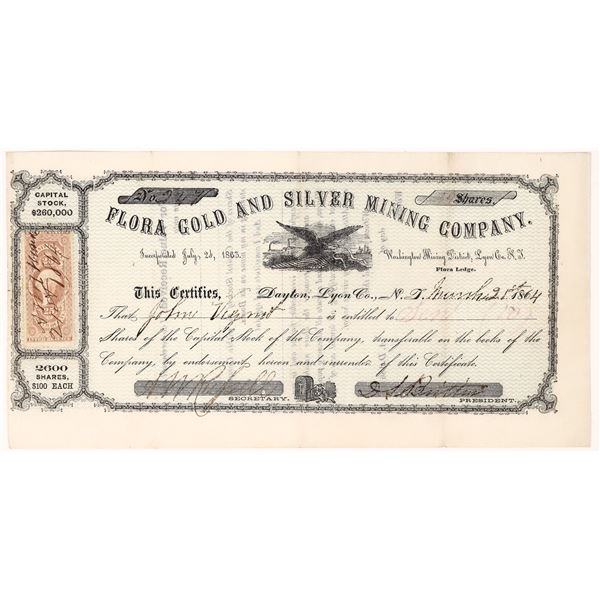 CAPITAL
STOCK,
$260,000
No. 244
Shares.
FLORA GOLD AND SILVER MINING COMPANY.
Incorporated July, 2d, 1863.
Washington Mining District, Lyon Co. N. T.
Flora Ledge.
This Certifies, Dayton, Lyon Co., N. T. 1864
That John is entitled to
Shares of the Capital Stock of the Company, transferable on the books of the
Company, by endorsement hereon and surrender of this Certificate.
2600
SHARES,
$100 EACH
SECRETARY.
PRESIDENT.